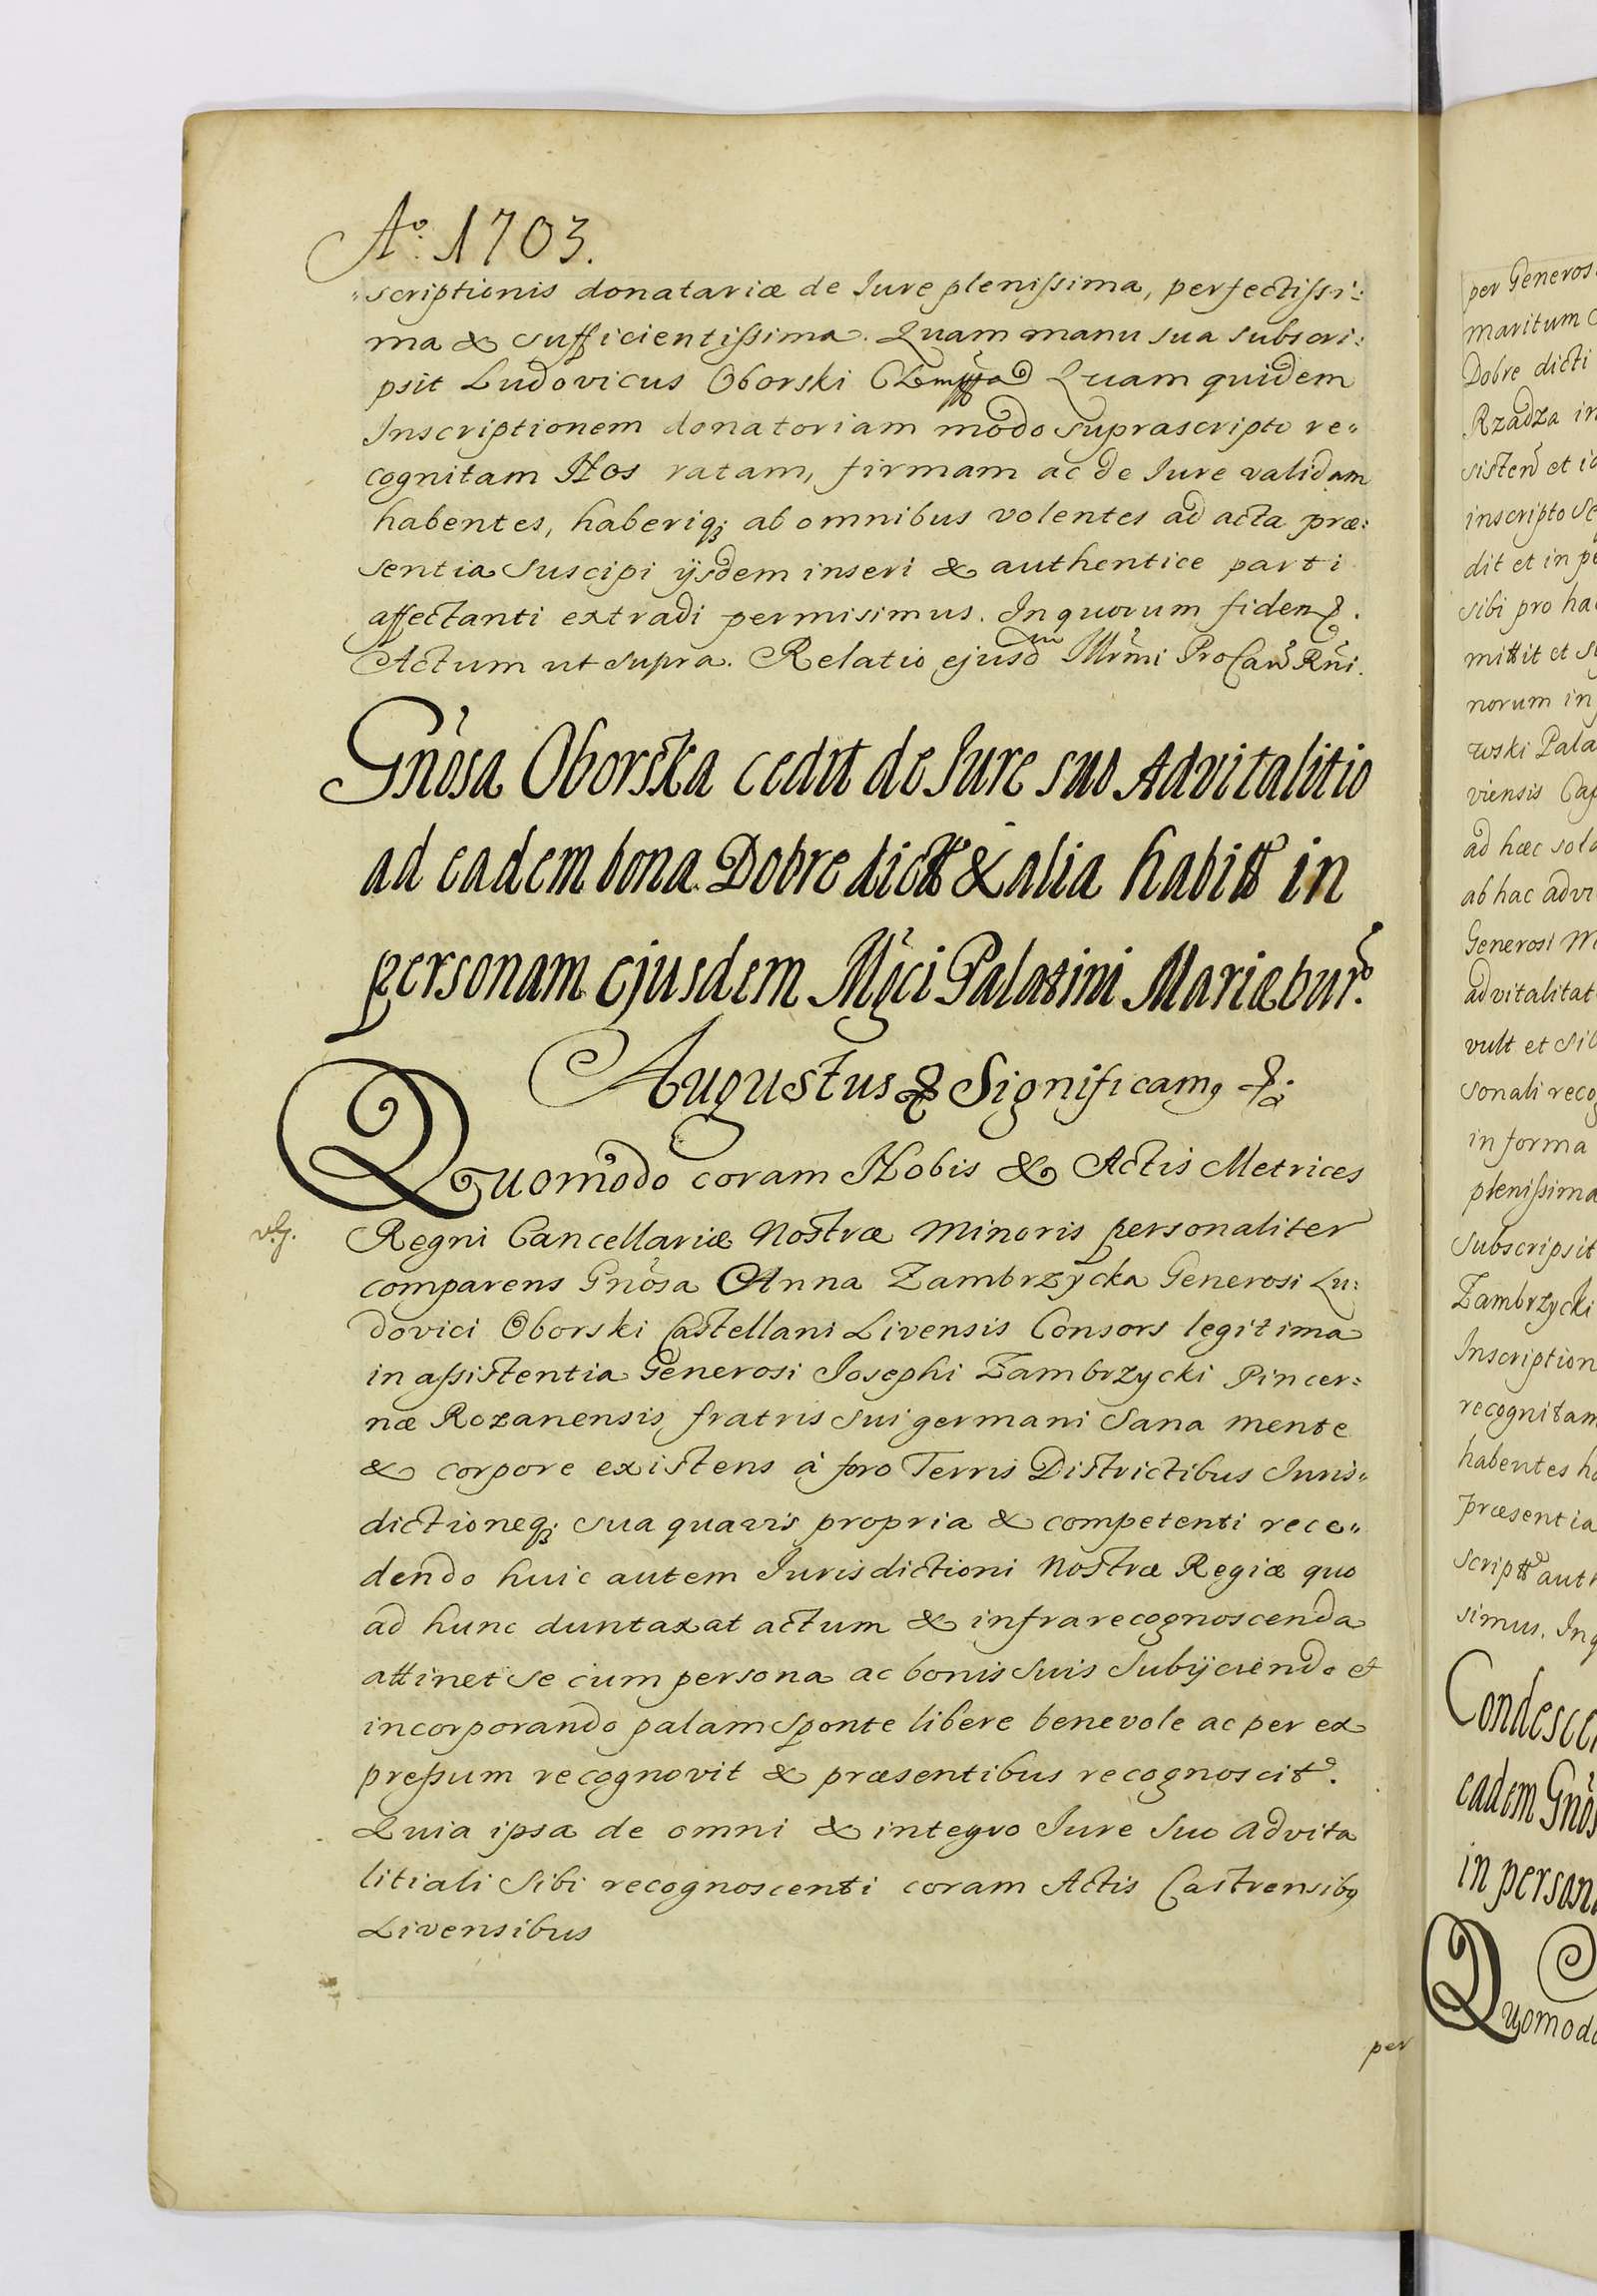 Aº. 1703.
"scriptionis donatariæ de Iure plenissima, perfectissi:
ma & sufficientissima. Quam manu sua subscri:
psit Ludovicus Oborski Quam quidem
Inscriptionem donatoriam modo suprascripto re"
cognitam Nos ratam, firmam ac de Iure validam
habentes, haberiq; ab omnibus volentes ad acta præ:
sentia suscipi ijsdem inseri & authentice parti
affectanti extradi permisimus. In quorum fidem &.
Actum ut supra. Relatio ejusdm Illrmi ProCanc Rni.
Gnosa Oborska cedit de Iure suo Advitalitio
ad eadem bona Dobre dictt & alia habitt in
personam ejusdem Mgci Palatini Mariæbur.
Augustus & Significamq &.
Quomodo coram Nobis & Actis Metrices
Regni Cancellariæ Nostræ Minoris personaliter
comparens Gnosa Anna Zambrzycka Generosi Lu:
dovici Oborski Castellani Livensis Consors legitima
in assistentia Generosi Iosephi Zambrzycki Pincer:
næ Rozanensis fratris sui germani sana mente
& corpore existens à foro Terris Districtibus Iuris"
dictioneq; sua quavis propria & competenti rece"
dendo huic autem Iurisdictioni Nostræ Regiæ quo
ad hunc duntaxat actum & infrarecognoscenda
attinet se cum persona ac bonis suis subijciendo et
incorporando palam sponte libere benevole ac per ex
pressum recognovit & præsentibus recognoscit.
Quia ipsa de omni & integro Iure suo advita
litiali sibi recognoscenti coram Actis Castrensibq
Livensibus
per
per Generos
maritum
Dobre dicti
Rzadza in
sisten et
inscripto
dit et in pe
sibi pro ha
mittit et
norum in
wski Pala
viensis Cap
ad hæc sola
ab hac advi
Generosi M
advitalitat
vult et sib
sonali recog
in forma
plenissima
subscripsit
Zambrzycki
Inscription
recognitam
habentes ha
præsentia
scriptt auth
simus. In q
Condescen
eadem Gnos
in person
Quomodo